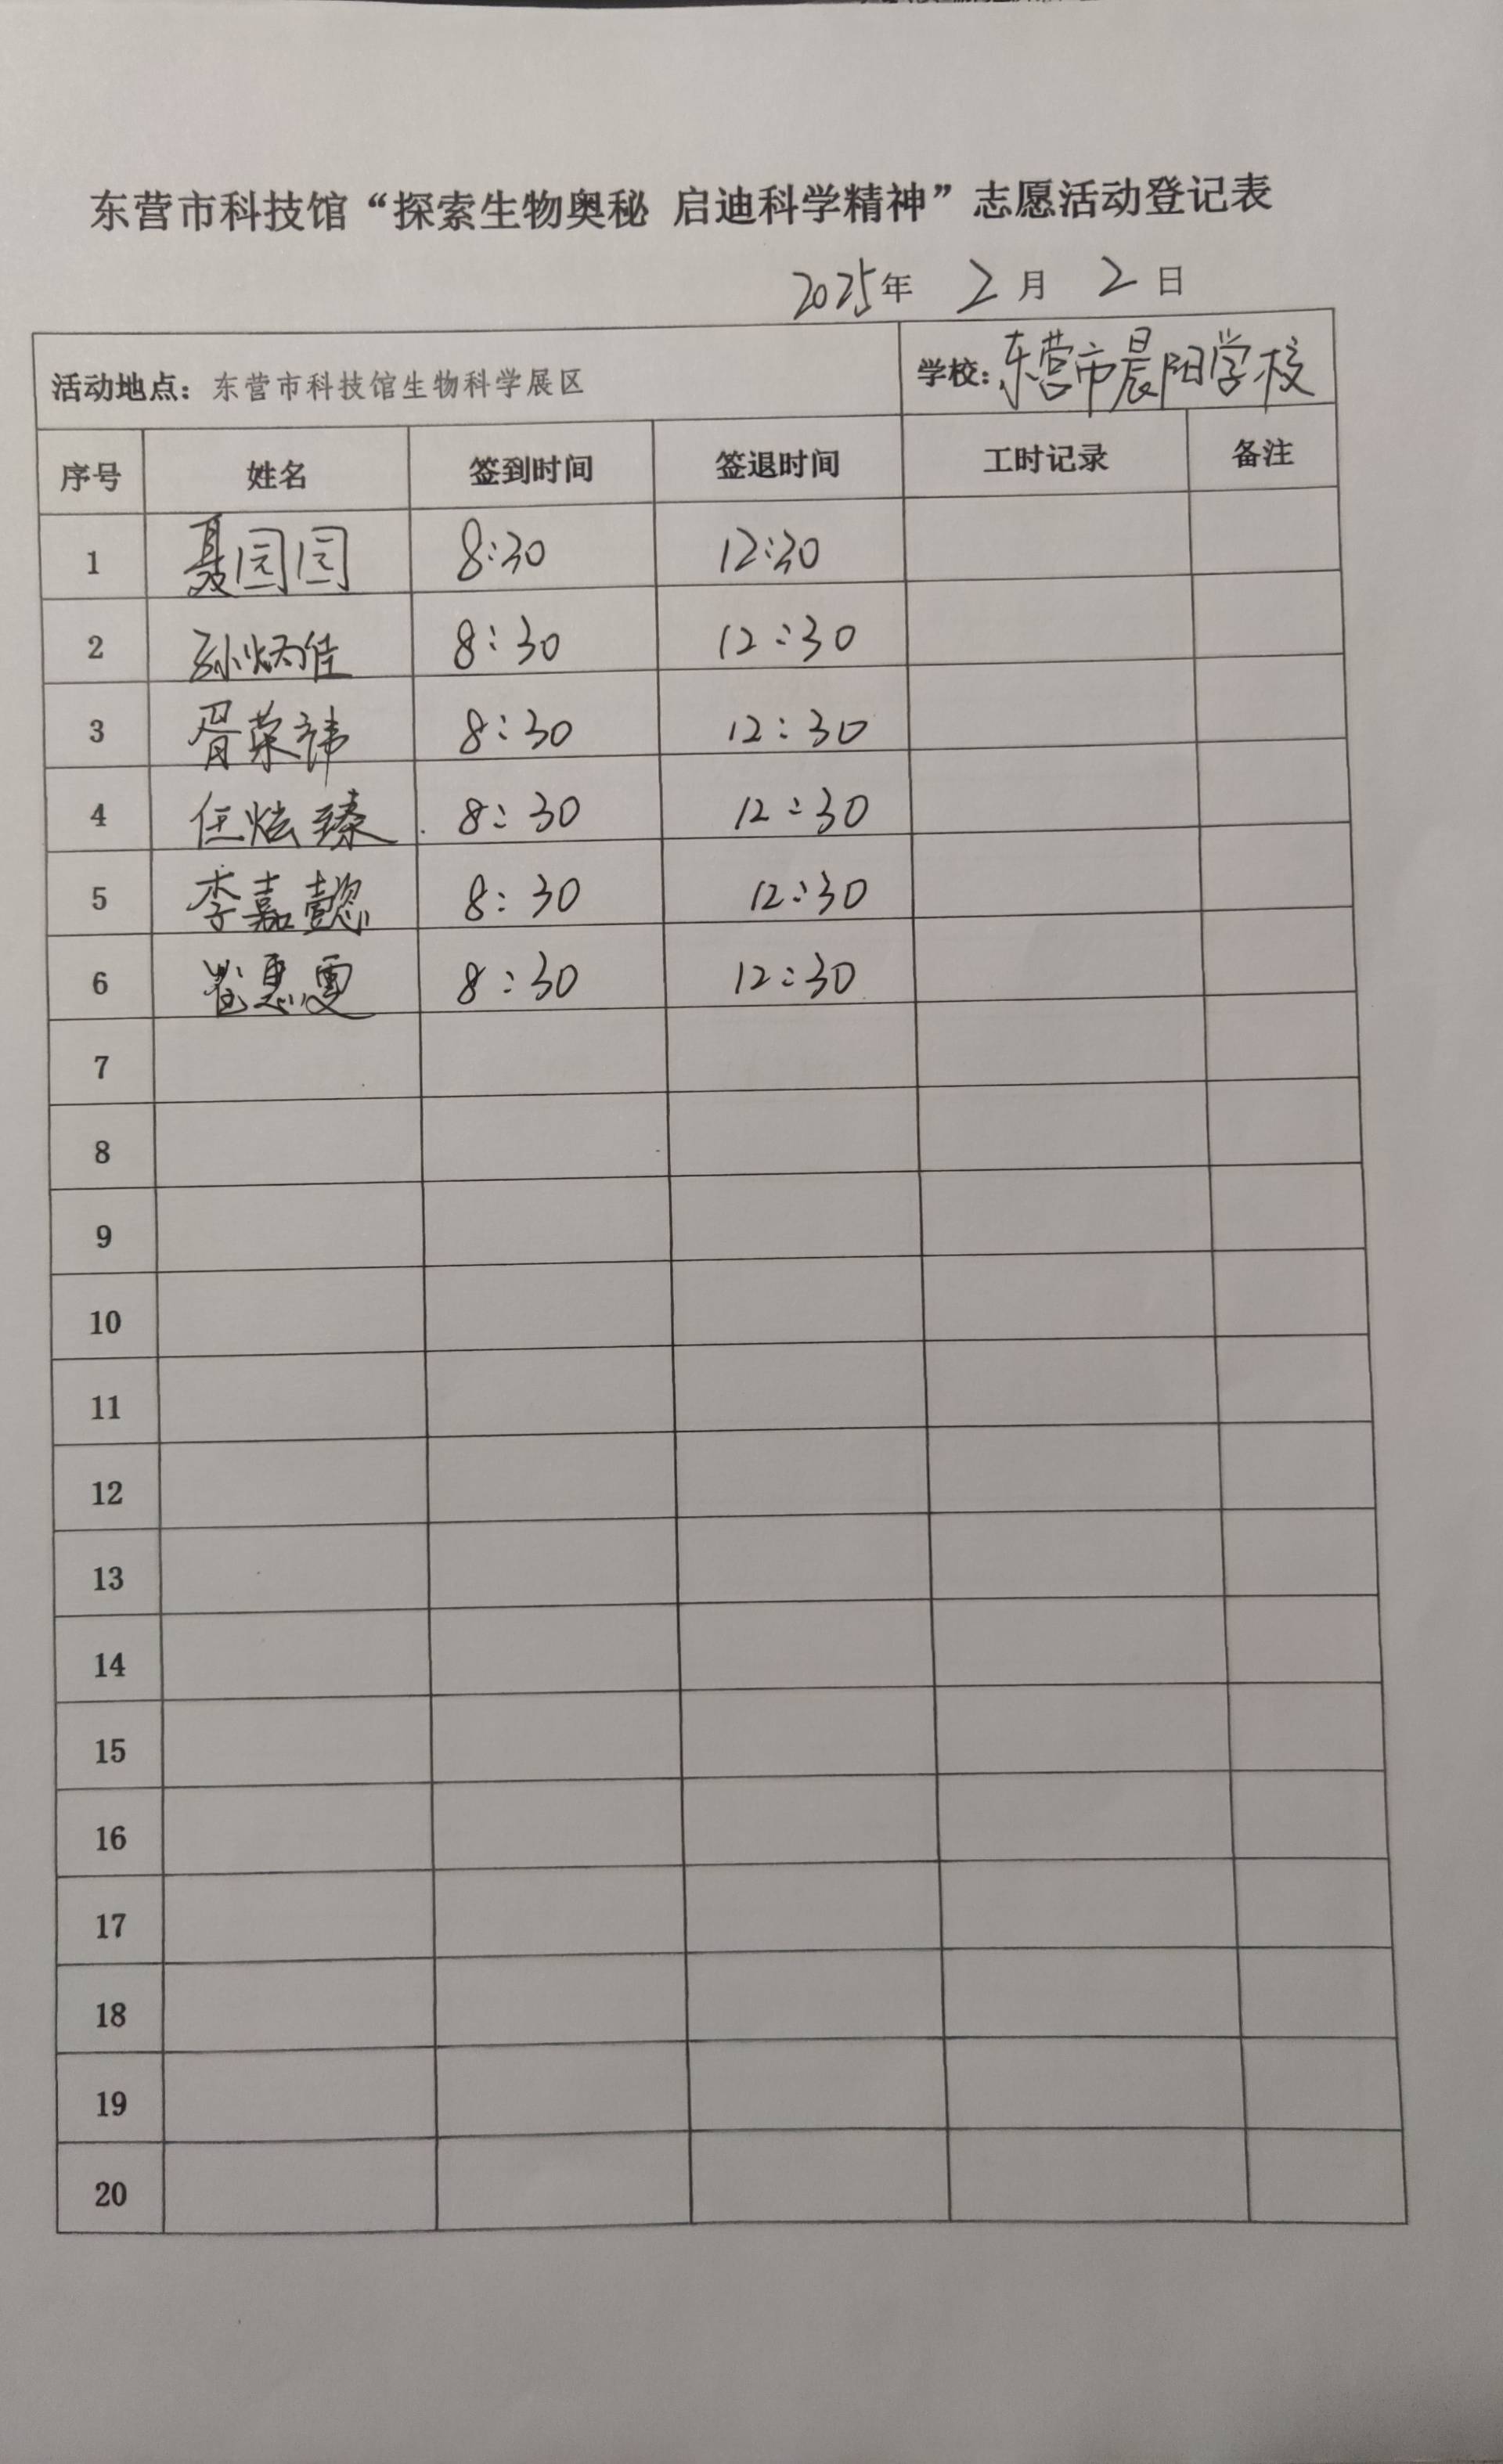 东营市科技馆“探索生物奥秘 启迪科学精神”志愿活动登记表
2025年 2月 2日
活动地点：东营市科技馆生物科学展区 学校：东营市晨阳学校
序号 姓名 签到时间 签退时间 工时记录 备注
1 聂园园 8:30 12:30
2 孙炳佳 8:30 12:30
3 胥荣祎 8:30 12:30
4 任炫臻 8:30 12:30
5 李嘉懿 8:30 12:30
6 8:30 12:30
7
8
9
10
11
12
13
14
15
16
17
18
19
20